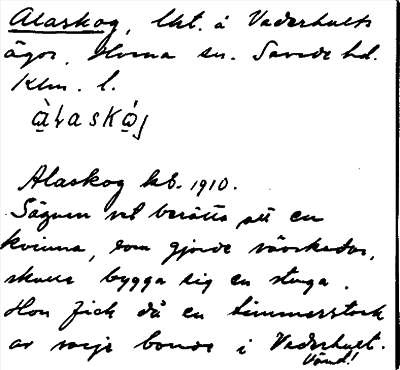 Alaskog, lht. å Vaderhults
ägor, Hvena sn. Sevede hd.
Klm. l.
Alaskog kb. 1910.
Sägnen vet berätta att en
kvinna, som gjorde vävskedar,
skulle bygga sig en stuga.
Hon fick då en timmerstock
av varje bonde i Vaderhult.
Vänd!